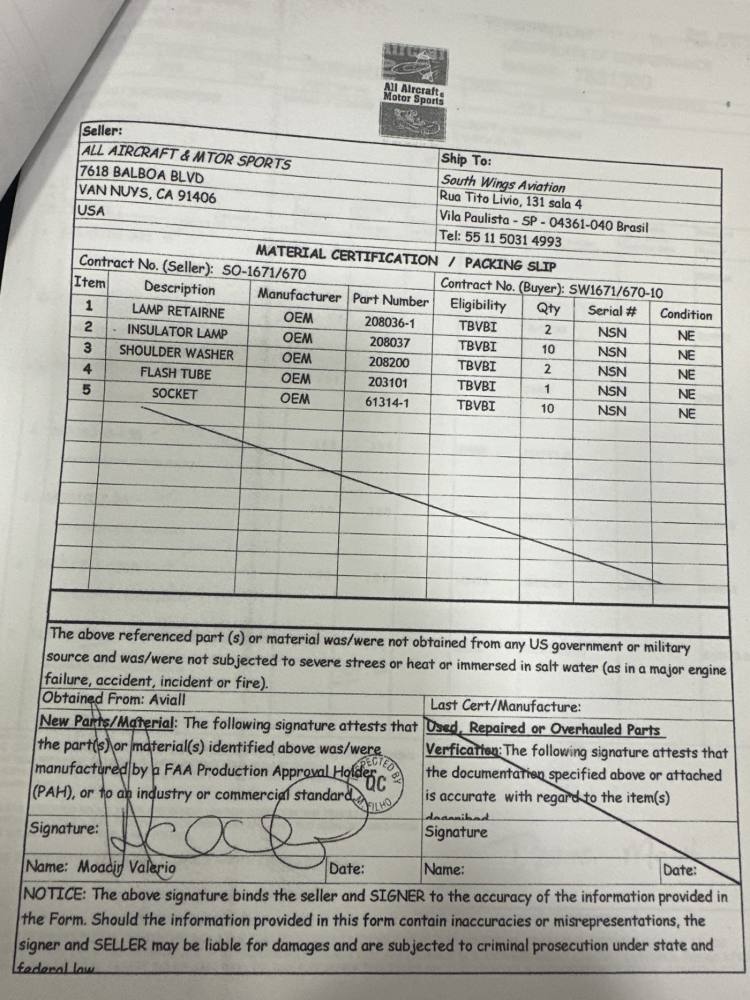 All Aircraft &
Motor Sports
Seller:
ALL AIRCRAFT & MTOR SPORTS
7618 BALBOA BLVD
VAN NUYS, CA 91406
USA
Ship To:
South Wings Aviation
Rua Tito Livio, 131 sala 4
Vila Paulista - SP - 04361-040 Brasil
Tel: 55 11 5031 4993
MATERIAL CERTIFICATION / PACKING SLIP
Contract No. (Seller): SO-1671/670
Contract No. (Buyer): SW1671/670-10
Item Description Manufacturer Part Number Eligibility Qty Serial # Condition
1 LAMP RETAIRNE OEM 208036-1 TBVBI 2 NSN NE
2 INSULATOR LAMP OEM 208037 TBVBI 10 NSN NE
3 SHOULDER WASHER OEM 208200 TBVBI 2 NSN NE
4 FLASH TUBE OEM 203101 TBVBI 1 NSN NE
5 SOCKET OEM 61314-1 TBVBI 10 NSN NE
The above referenced part (s) or material was/were not obtained from any US government or military
source and was/were not subjected to severe strees or heat or immersed in salt water (as in a major engine
failure, accident, incident or fire).
Obtained From: Aviall
Last Cert/Manufacture:
New Parts/Material: The following signature attests that
the part(s) or material(s) identified above was/were
manufactured by a FAA Production Approval Holder
(PAH), or to an industry or commercial standard
INSPECTED BY
QC
M. FILHO
Used, Repaired or Overhauled Parts
Verfication: The following signature attests that
the documentation specified above or attached
is accurate with regard to the item(s)
described
Signature:
Signature
Name: Moacir Valerio
Date:
Name:
Date:
NOTICE: The above signature binds the seller and SIGNER to the accuracy of the information provided in
the Form. Should the information provided in this form contain inaccuracies or misrepresentations, the
signer and SELLER may be liable for damages and are subjected to criminal prosecution under state and
federal law